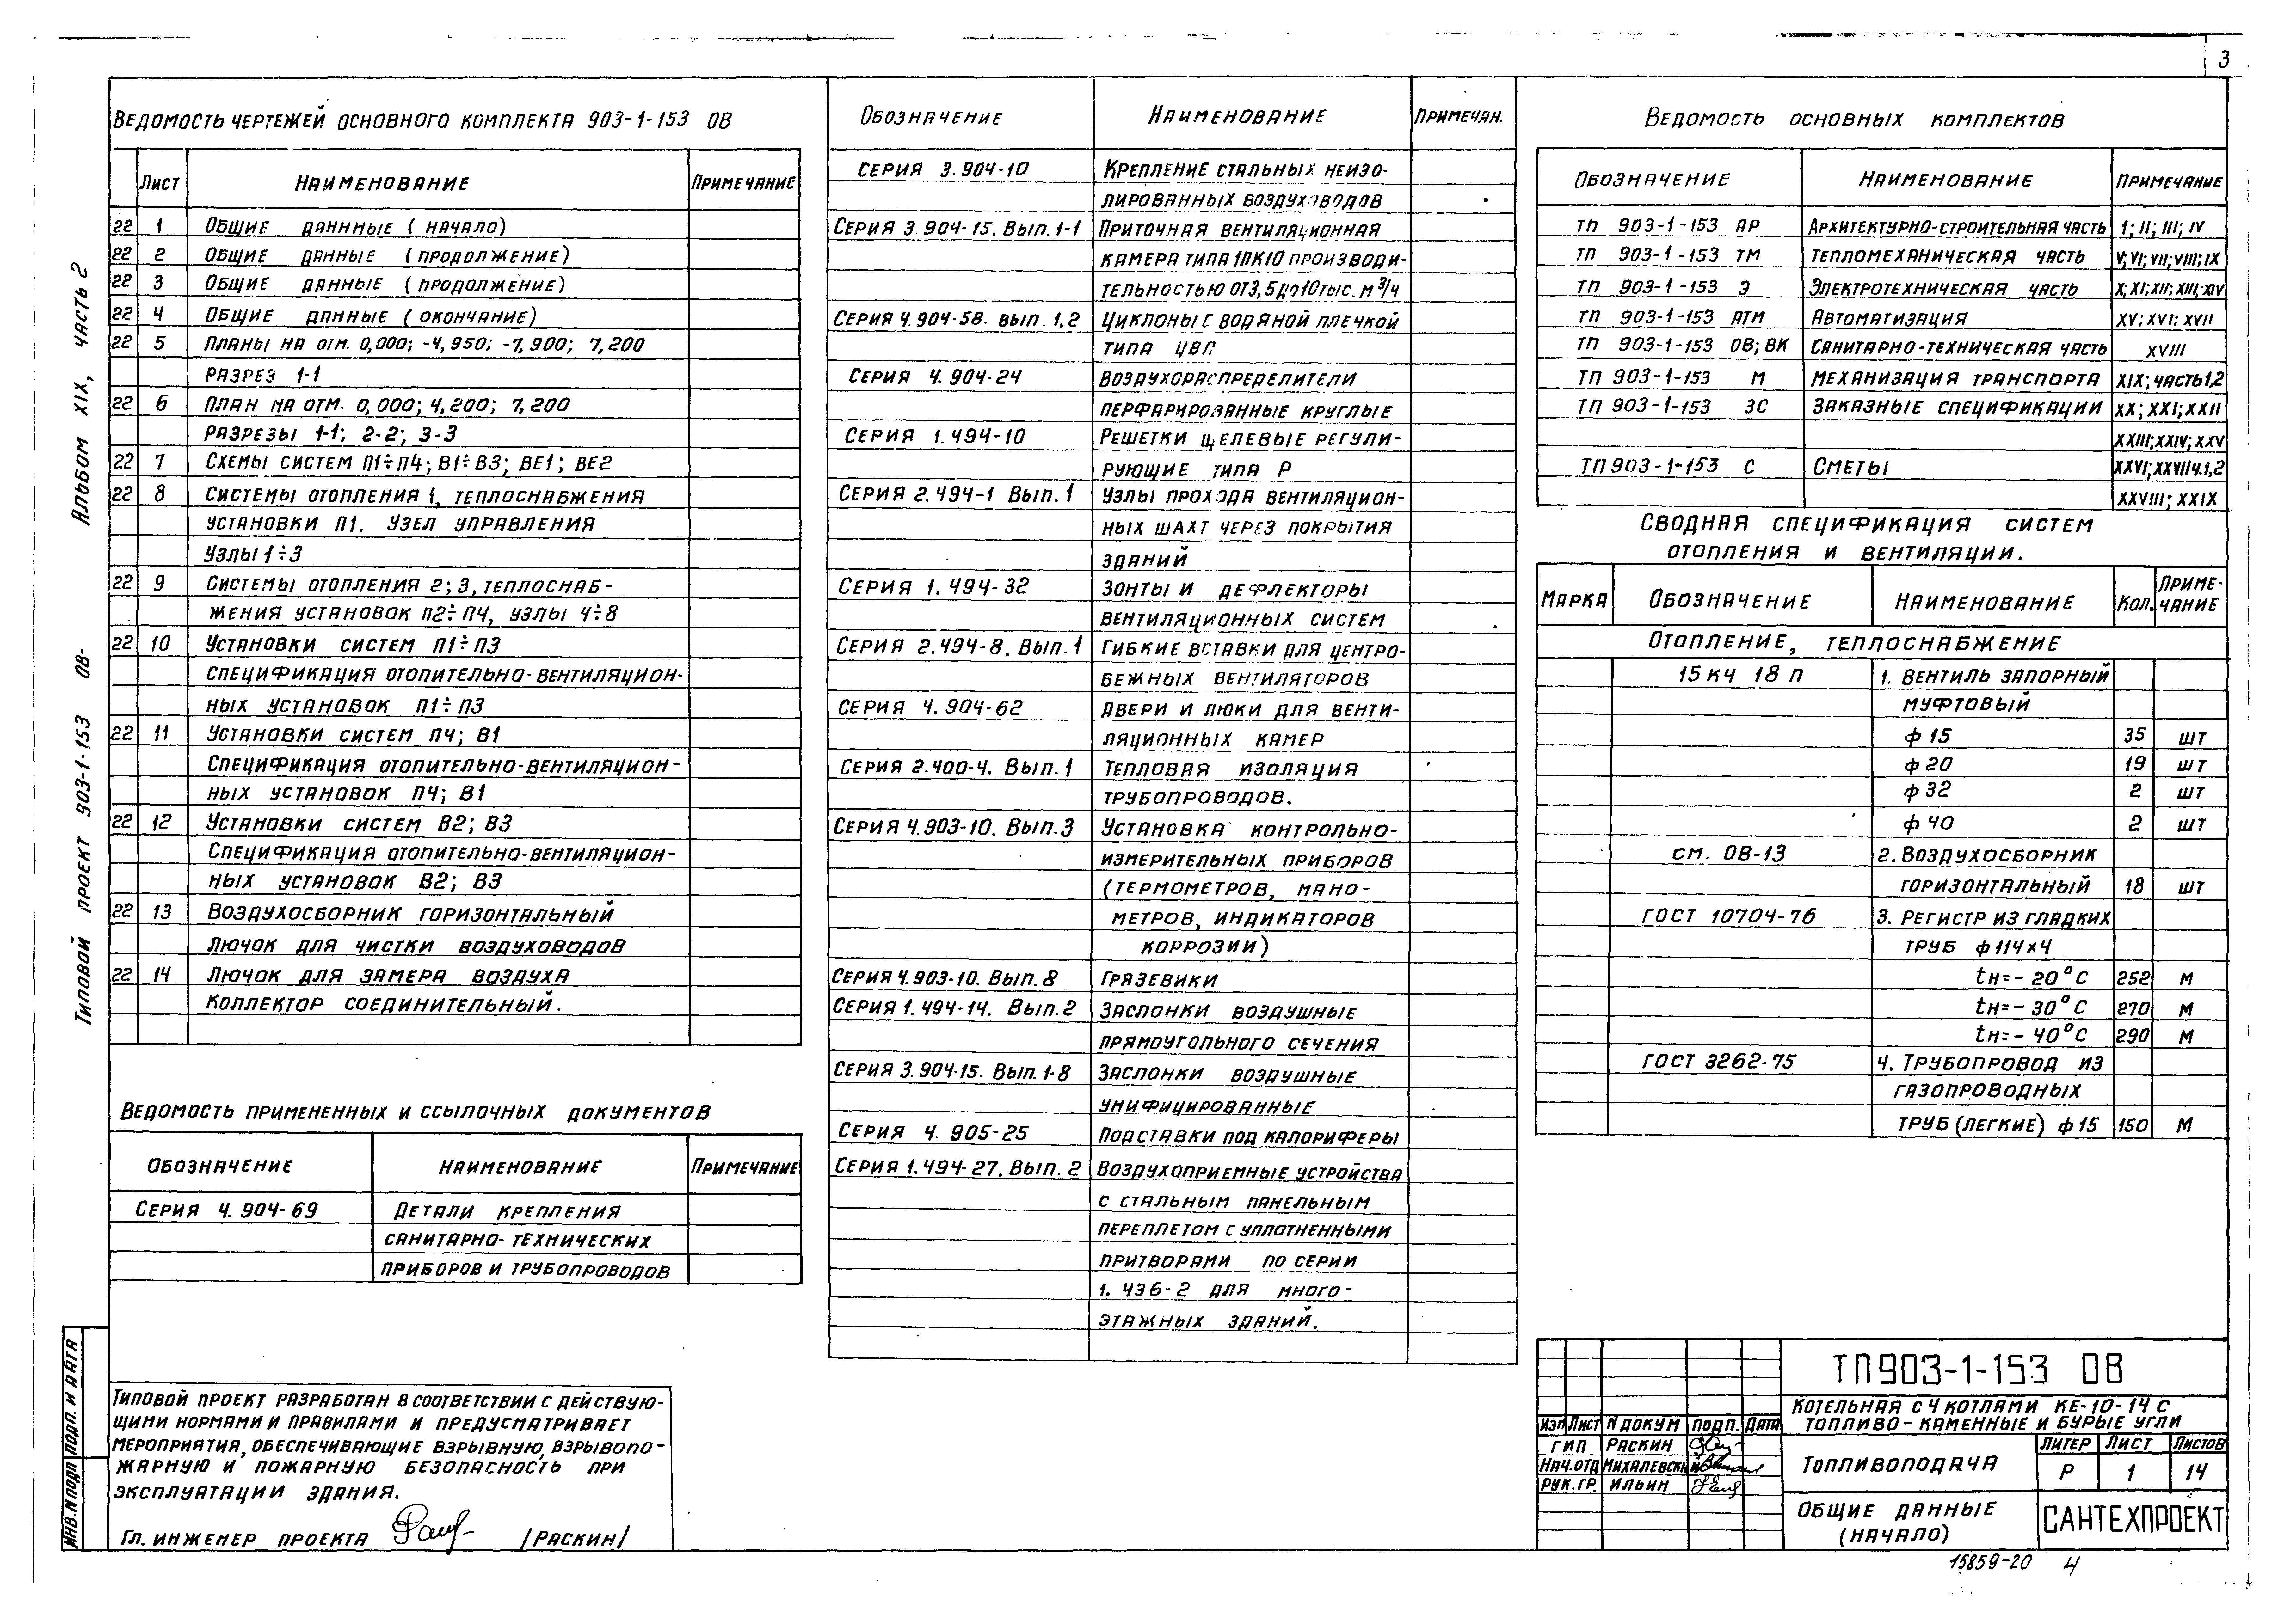 3
Ведомость чертежей основного комплекта 903-1-153 ОВ
Лист Наименование Примечание
22 1 Общие даннные (начало)
22 2 Общие данные (продолжение)
22 3 Общие данные (продолжение)
22 4 Общие данные (окончание)
22 5 Планы на отм. 0,000; -4,950; -7,900; 7,200
разрез 1-1
22 6 План на отм. 0,000; 4,200; 7,200
разрезы 1-1; 2-2; 3-3
22 7 Схемы систем П1÷П4; В1÷В3; ВЕ1; ВЕ2
22 8 Системы отопления 1, теплоснабжения
установки П1. Узел управления
Узлы 1÷3
22 9 Системы отопления 2; 3, теплоснаб-
жения установок П2÷П4, узлы 4÷8
22 10 Установки систем П1÷П3
Спецификация отопительно-вентиляцион-
ных установок П1÷П3
22 11 Установки систем П4; В1
Спецификация отопительно-вентиляцион-
ных установок П4; В1
22 12 Установки систем В2; В3
Спецификация отопительно-вентиляцион-
ных установок В2; В3
22 13 Воздухосборник горизонтальный
Лючок для чистки воздуховодов
22 14 Лючок для замера воздуха
Коллектор соединительный.
Ведомость примененных и ссылочных документов
Обозначение Наименование Примечание
Серия 4.904-69 Детали крепления
санитарно-технических
приборов и трубопроводов
Типовой проект разработан в соответствии с действую-
щими нормами и правилами и предусматривает
мероприятия, обеспечивающие взрывную, взрывопо-
жарную и пожарную безопасность при
эксплуатации здания.
Гл. инженер проекта /Раскин/
Обозначение Наименование Примечан.
Серия 3.904-10 Крепление стальных неизо-
лированных воздуховодов
Серия 3.904-15. Вып. 1-1 Приточная вентиляционная
камера типа 1ПК10 производи-
тельностью от 3,5 до 10 тыс. м³/ч
Серия 4.904-58. вып. 1,2 Циклоны с водяной пленкой
типа ЦВП
Серия 4.904-24 Воздухораспределители
перфарированные круглые
Серия 1.494-10 Решетки щелевые регули-
рующие типа Р
Серия 2.494-1 Вып. 1 Узлы прохода вентиляцион-
ных шахт через покрытия
зданий
Серия 1.494-32 Зонты и дефлекторы
вентиляционных систем
Серия 2.494-8. Вып. 1 Гибкие вставки для центро-
бежных вентиляторов
Серия 4.904-62 Двери и люки для венти-
ляционных камер
Серия 2.400-4. Вып. 1 Тепловая изоляция
трубопроводов.
Серия 4.903-10. Вып. 3 Установка контрольно-
измерительных приборов
(термометров, мано-
метров, индикаторов
коррозии)
Серия 4.903-10. Вып. 8 Грязевики
Серия 1.494-14. Вып. 2 Заслонки воздушные
прямоугольного сечения
Серия 3.904-15. Вып. 1-8 Заслонки воздушные
унифицированные
Серия 4.905-25 Подставки под калориферы
Серия 1.494-27. Вып. 2 Воздухоприемные устройства
с стальным панельным
переплетом с уплотненными
притворами по серии
1.436-2 для много-
этажных зданий.
Ведомость основных комплектов
Обозначение Наименование Примечание
ТП 903-1-153 АР Архитектурно-строительная часть I; II; III; IV
ТП 903-1-153 ТМ Тепломеханическая часть V; VI; VII; VIII; IX
ТП 903-1-153 Э Электротехническая часть X; XI; XII; XIII; XIV
ТП 903-1-153 АТМ Автоматизация XV; XVI; XVII
ТП 903-1-153 ОВ; ВК Санитарно-техническая часть XVIII
ТП 903-1-153 М Механизация транспорта XIX; часть 1,2
ТП 903-1-153 ЗС Заказные спецификации XX; XXI; XXII
XXIII; XXIV; XXV
ТП 903-1-153 С Сметы XXVI; XXVII ч.1,2
XXVIII; XXIX
Сводная спецификация систем
отопления и вентиляции.
Марка Обозначение Наименование Кол. Приме-
чание
Отопление, теплоснабжение
15 кч 18 п 1. Вентиль запорный
муфтовый
ф 15 35 шт
ф 20 19 шт
ф 32 2 шт
ф 40 2 шт
см. ОВ-13 2. Воздухосборник
горизонтальный 18 шт
ГОСТ 10704-76 3. Регистр из гладких
труб ф 114×4
tн=-20°С 252 м
tн=-30°С 270 м
tн=-40°С 290 м
ГОСТ 3262-75 4. Трубопровод из
газопроводных
труб (легкие) ф 15 150 м
ТП 903-1-153 ОВ
Котельная с 4 котлами КЕ-10-14 С
Топливо-каменные и бурые угли
Изм Лист N докум Подп. Дата
ГИП Раскин
Нач.отд Михалевский
Рук.гр. Ильин
Топливоподача
Литер Лист Листов
Р 1 14
Общие данные
(начало)
САНТЕХПРОЕКТ
15859-20 4
Типовой проект 903-1-153 ОВ- Альбом XIX, часть 2
Инв. N подл Подп. и дата